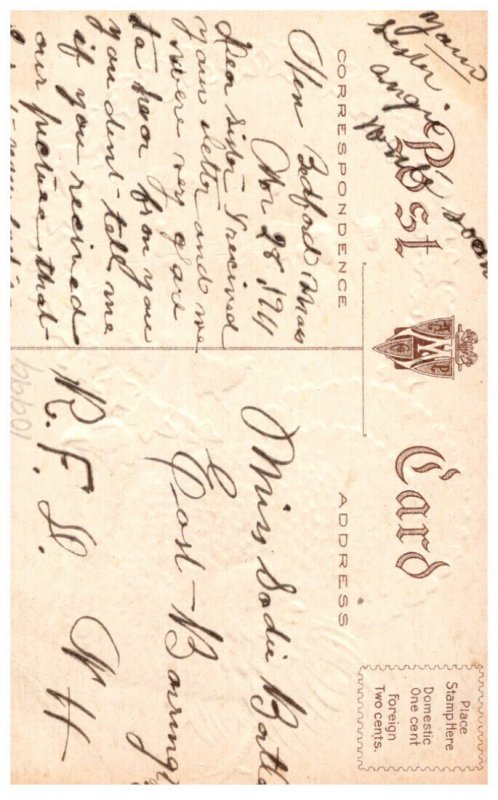 yours
sister
angie
write soon
Post Card
CORRESPONDENCE
New Bedford Mass
Nov 28, 1911
Dear Sister I received
your letter and we
were very glad
to hear from you
you dident tell me
if you received
our picture, that
ADDRESS
Miss Sadie Bartle
East Barring
R. F. D. N H
Place
Stamp Here
Domestic
One cent
Foreign
Two cents.